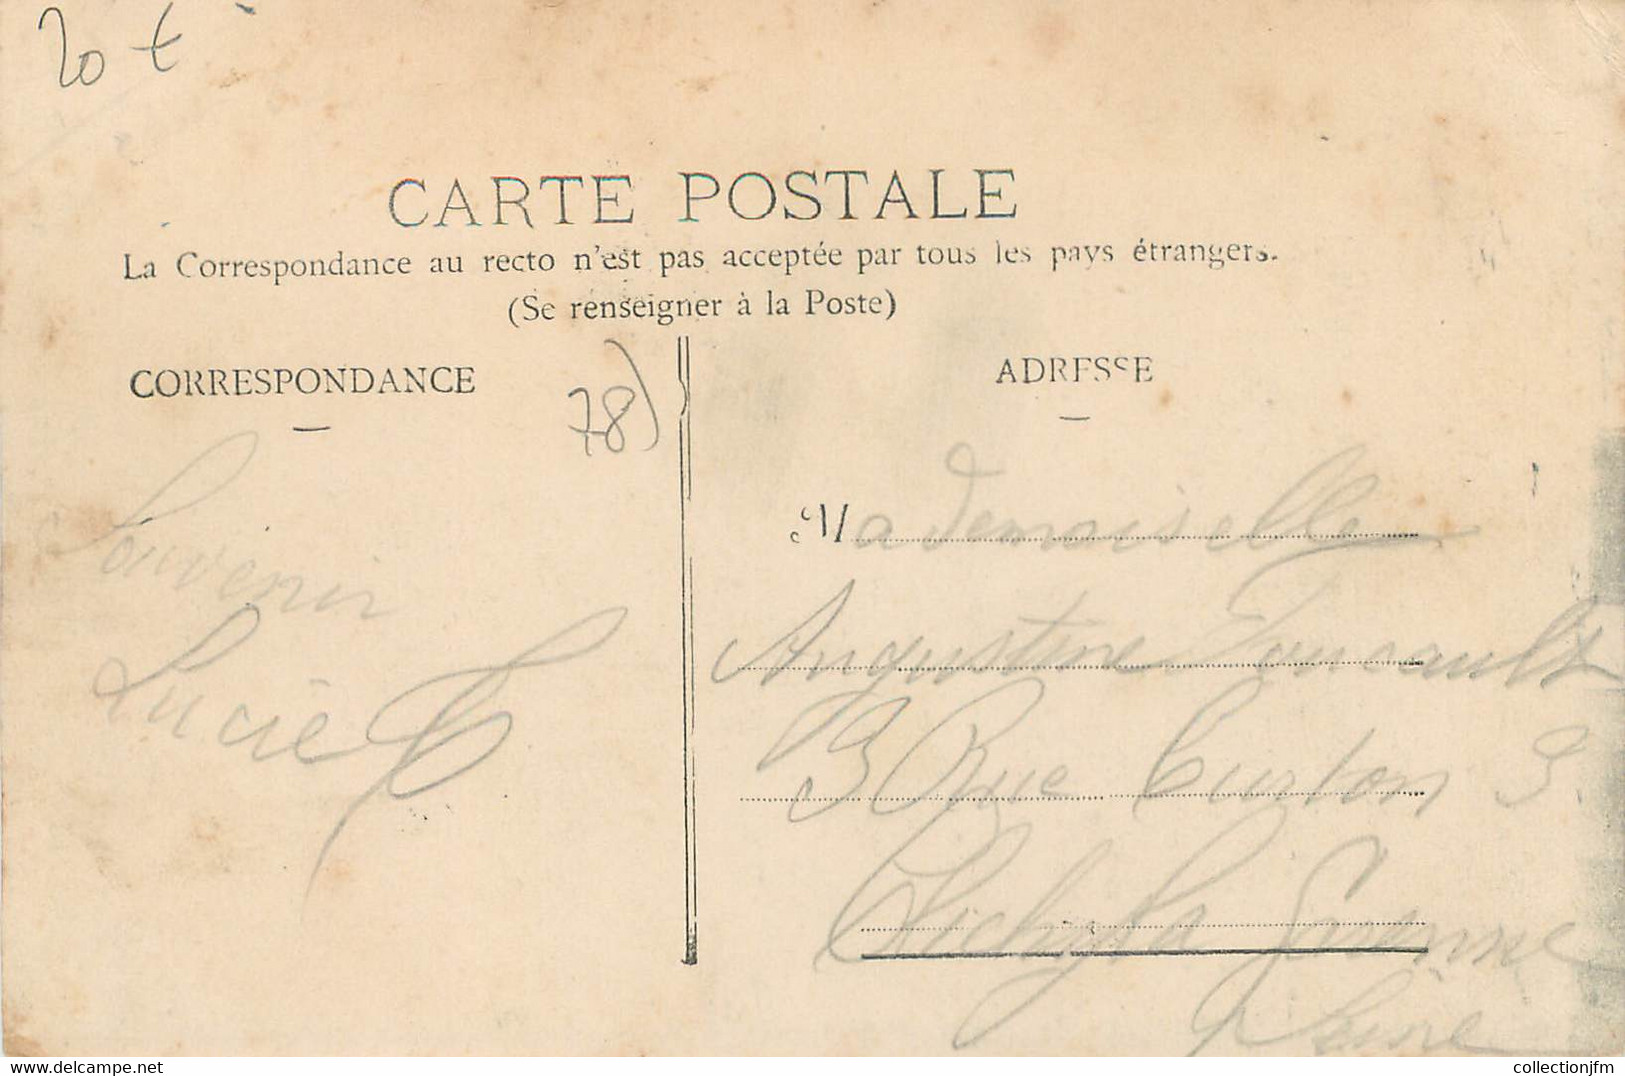 20 €
CARTE POSTALE
La Correspondance au recto n'est pas acceptée par tous les pays étrangers.
(Se renseigner à la Poste)
CORRESPONDANCE
78)
ADRESSE
Souvenir
Lucie
Mademoiselle
Augustine Foucault
3 Rue Curton 3.
Clichy la Garenne
Seine
collectionjfm